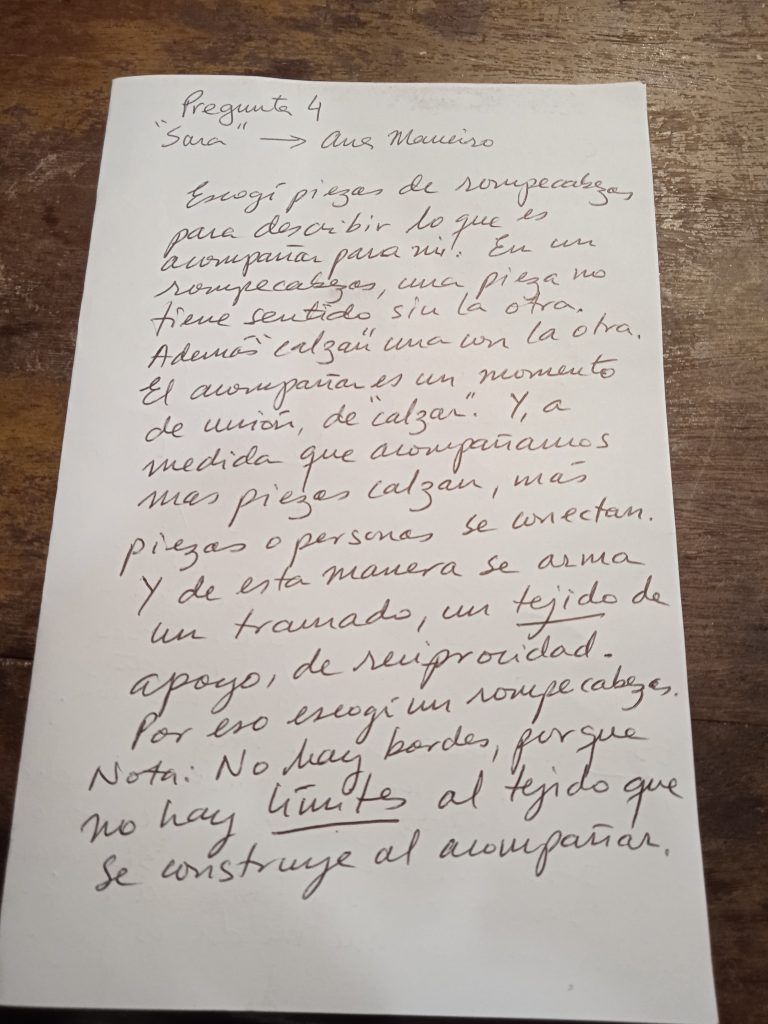 Pregunta 4
"Sara" → Ana Maneiro
Escogí piezas de rompecabezas
para describir lo que es
acompañar para mí. En un
rompecabezas, una pieza no
tiene sentido sin la otra.
Además "calzan" una con la otra.
El acompañar es un momento
de unión, de "calzar". Y, a
medida que acompañamos
mas piezas calzan, más
piezas o personas se conectan.
Y de esta manera se arma
un tramado, un tejido de
apoyo, de reciprocidad.
Por eso escogí un rompecabezas.
Nota: No hay bordes, porque
no hay límites al tejido que
se construye al acompañar.